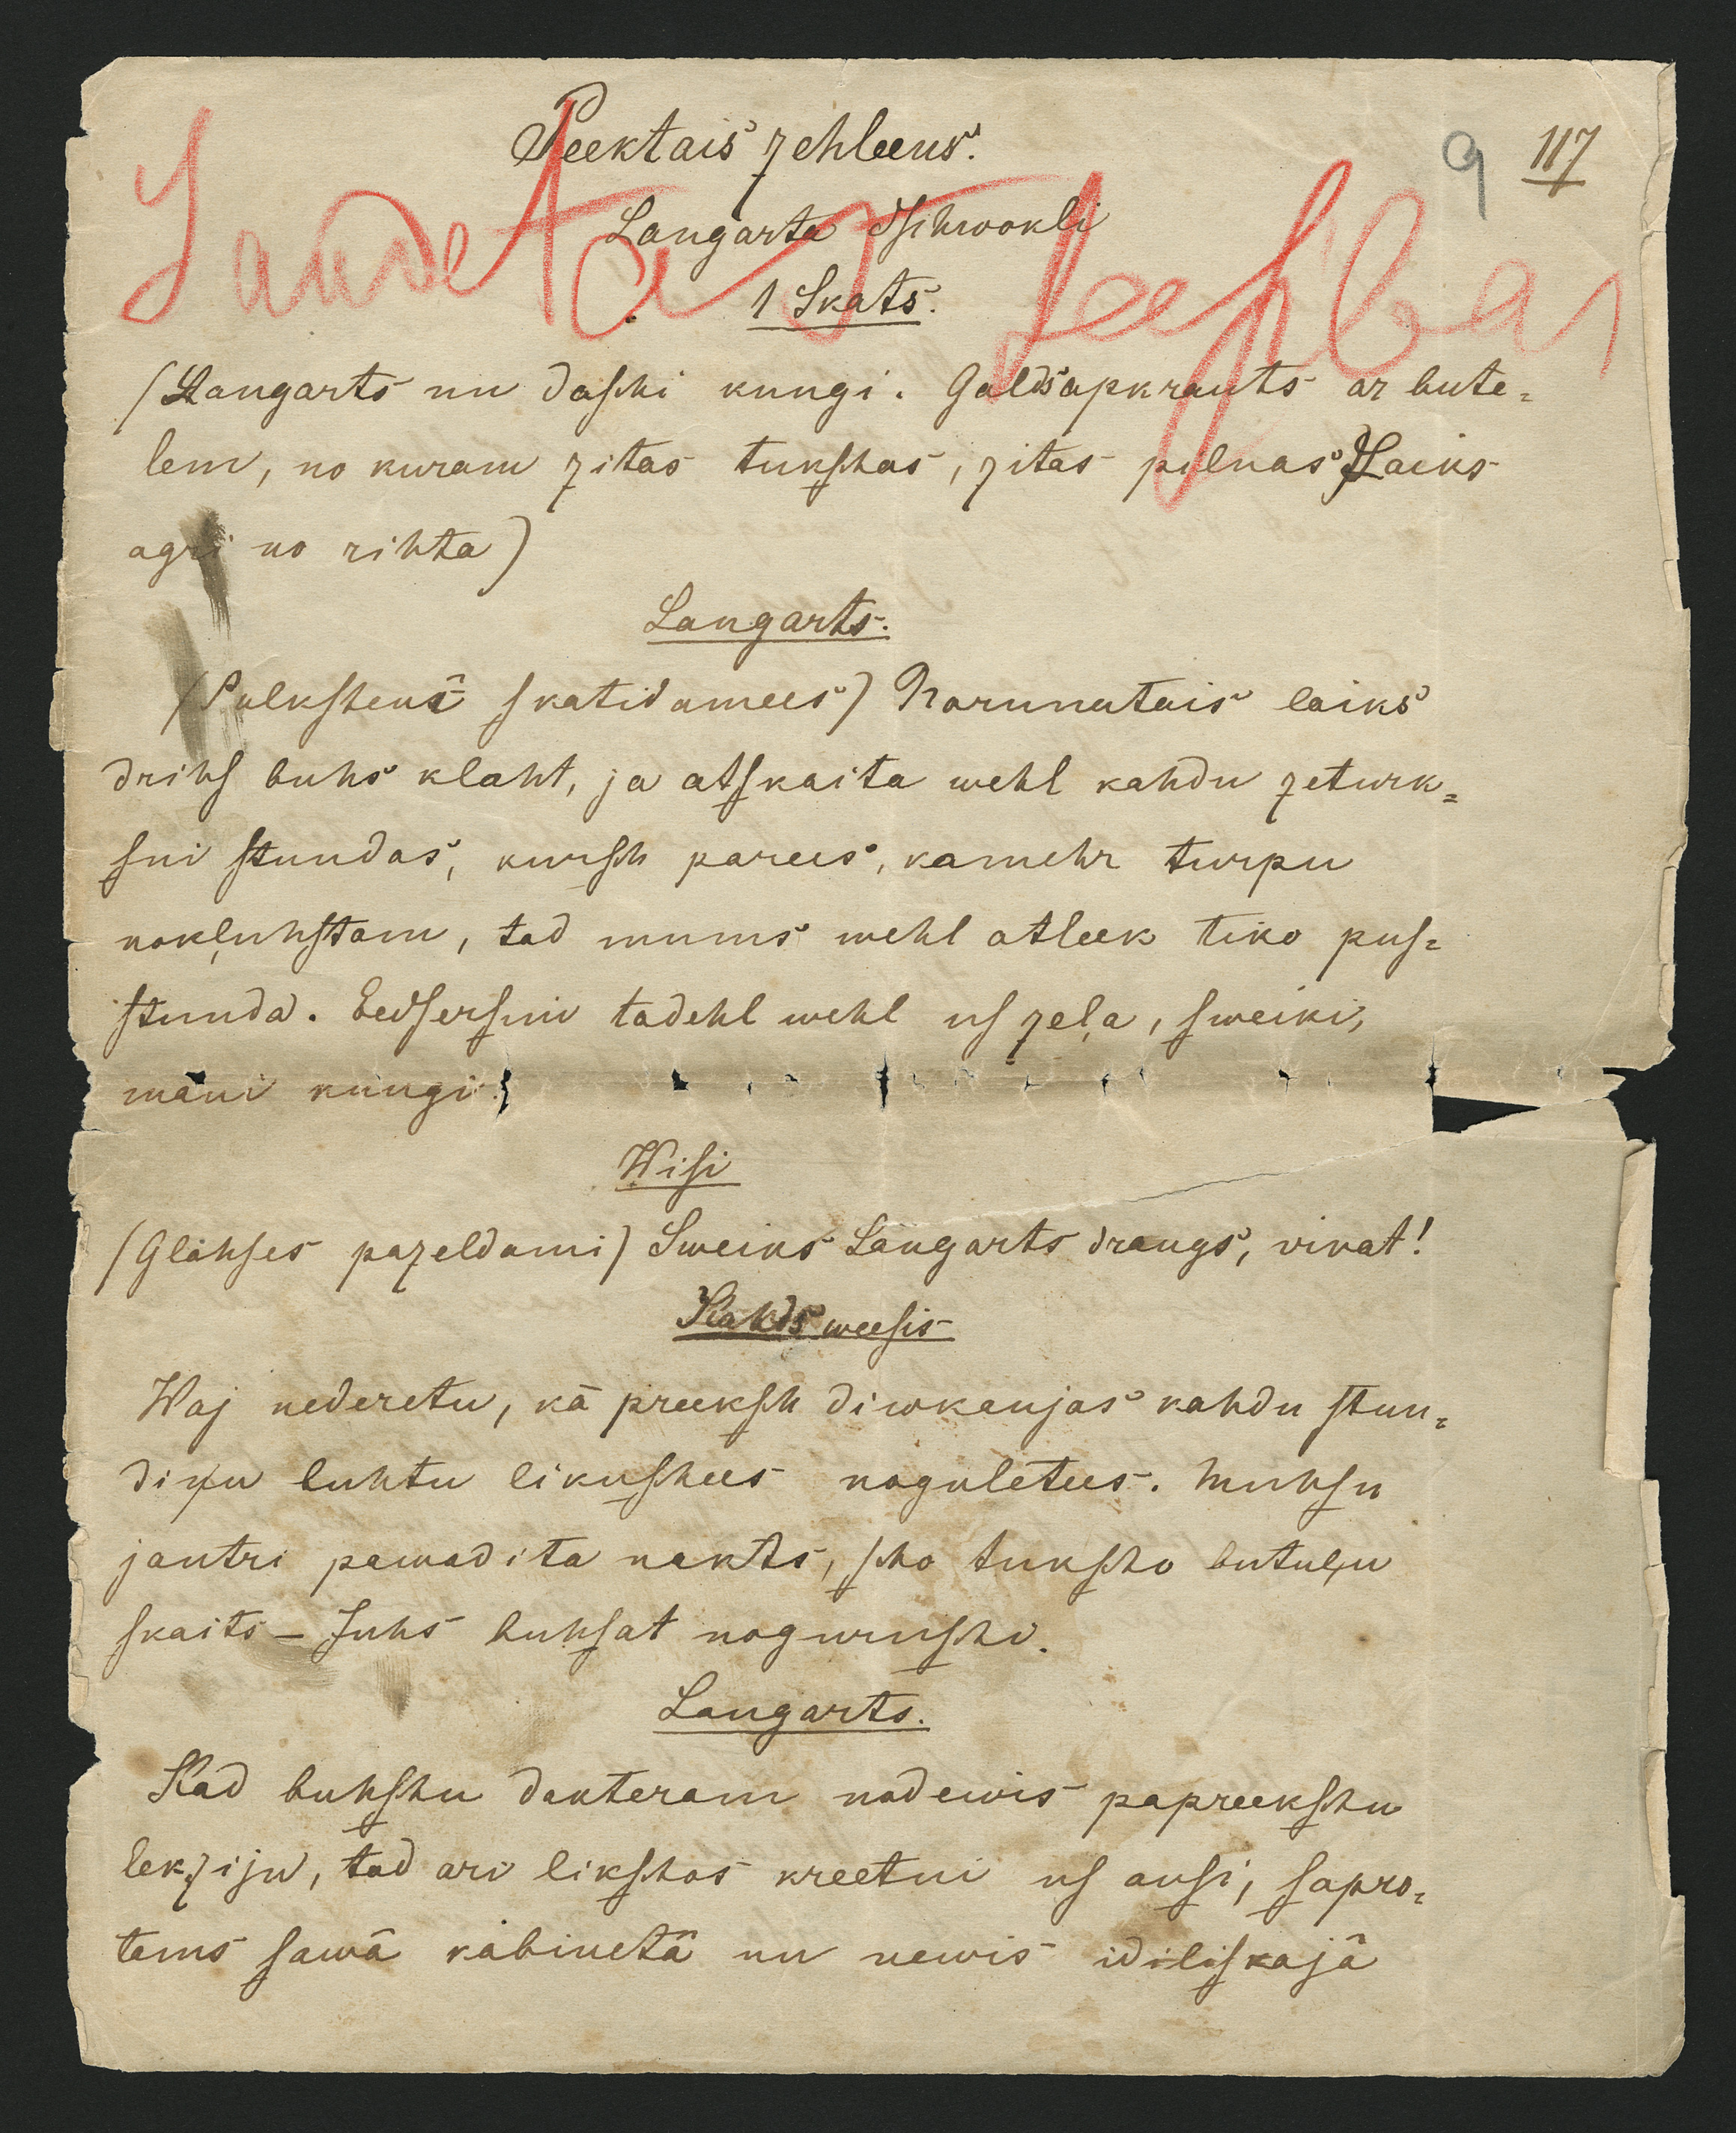 Peektais zehleens.
9 117
Langarta dsihwokli
1 Skats.
(Langarts un daschi kungi. Galds apkrauts ar bute=
lem, no kuram zitas tukschas, zitas pilnas Laiks
agri no rihta)
Langarts.
(Pulkstenî skatidamees) Norunatais laiks
drihs buhs klaht, ja atskaita wehl kahdu zeturk=
sni stundas, kursch parees, kamehr turpu
nokļuhstam, tad mums wehl atleek tiko pus=
stunda. Eedsersim tadehl wehl us zeļa, sweiki,
mani kungi!
Wisi
(Glahses pazeldami) Sweiks Langarts draugs, vivat!
Kahds weesis
Waj nederetu, kā preeksch diwkaujas kahdu stun=
diņu luhtu likuschees noguletees. Muhsu
jautri pawadita nakts, scho tukscho butuļu
skaits – Juhs buhsat noguruschi.
Langarts.
Kad buhschu dakteram nodewis papreekschu
lekziju, tad ari likschos kreetni us ausi, sapro=
tams sawā kabinetā un newis idiliskajā